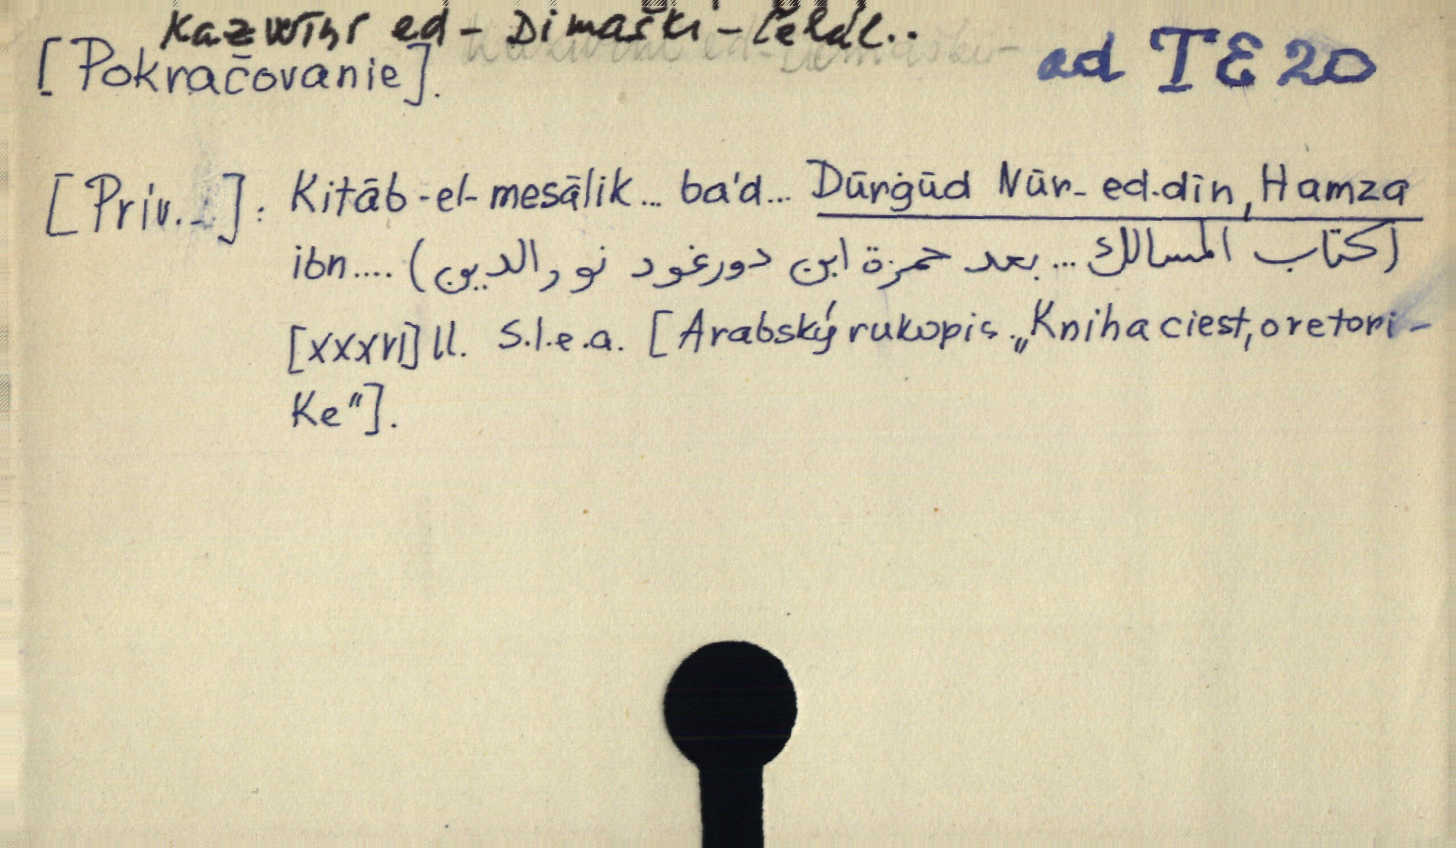 Kazwīnī ed-Dimaškī-Čelál..
[Pokračovanie]. ad TE 20
[Priv...]: Kitāb-el-mesālik... ba'd... Dūrġūd Nūr-ed-dīn, Hamza
ibn.... (كتاب المسالك ... بعد حمزة ابن دورغود نورالدين)
[XXXVI] ll. S.l.e.a. [Arabský rukopis „Kniha ciest, o retori-
ke"].